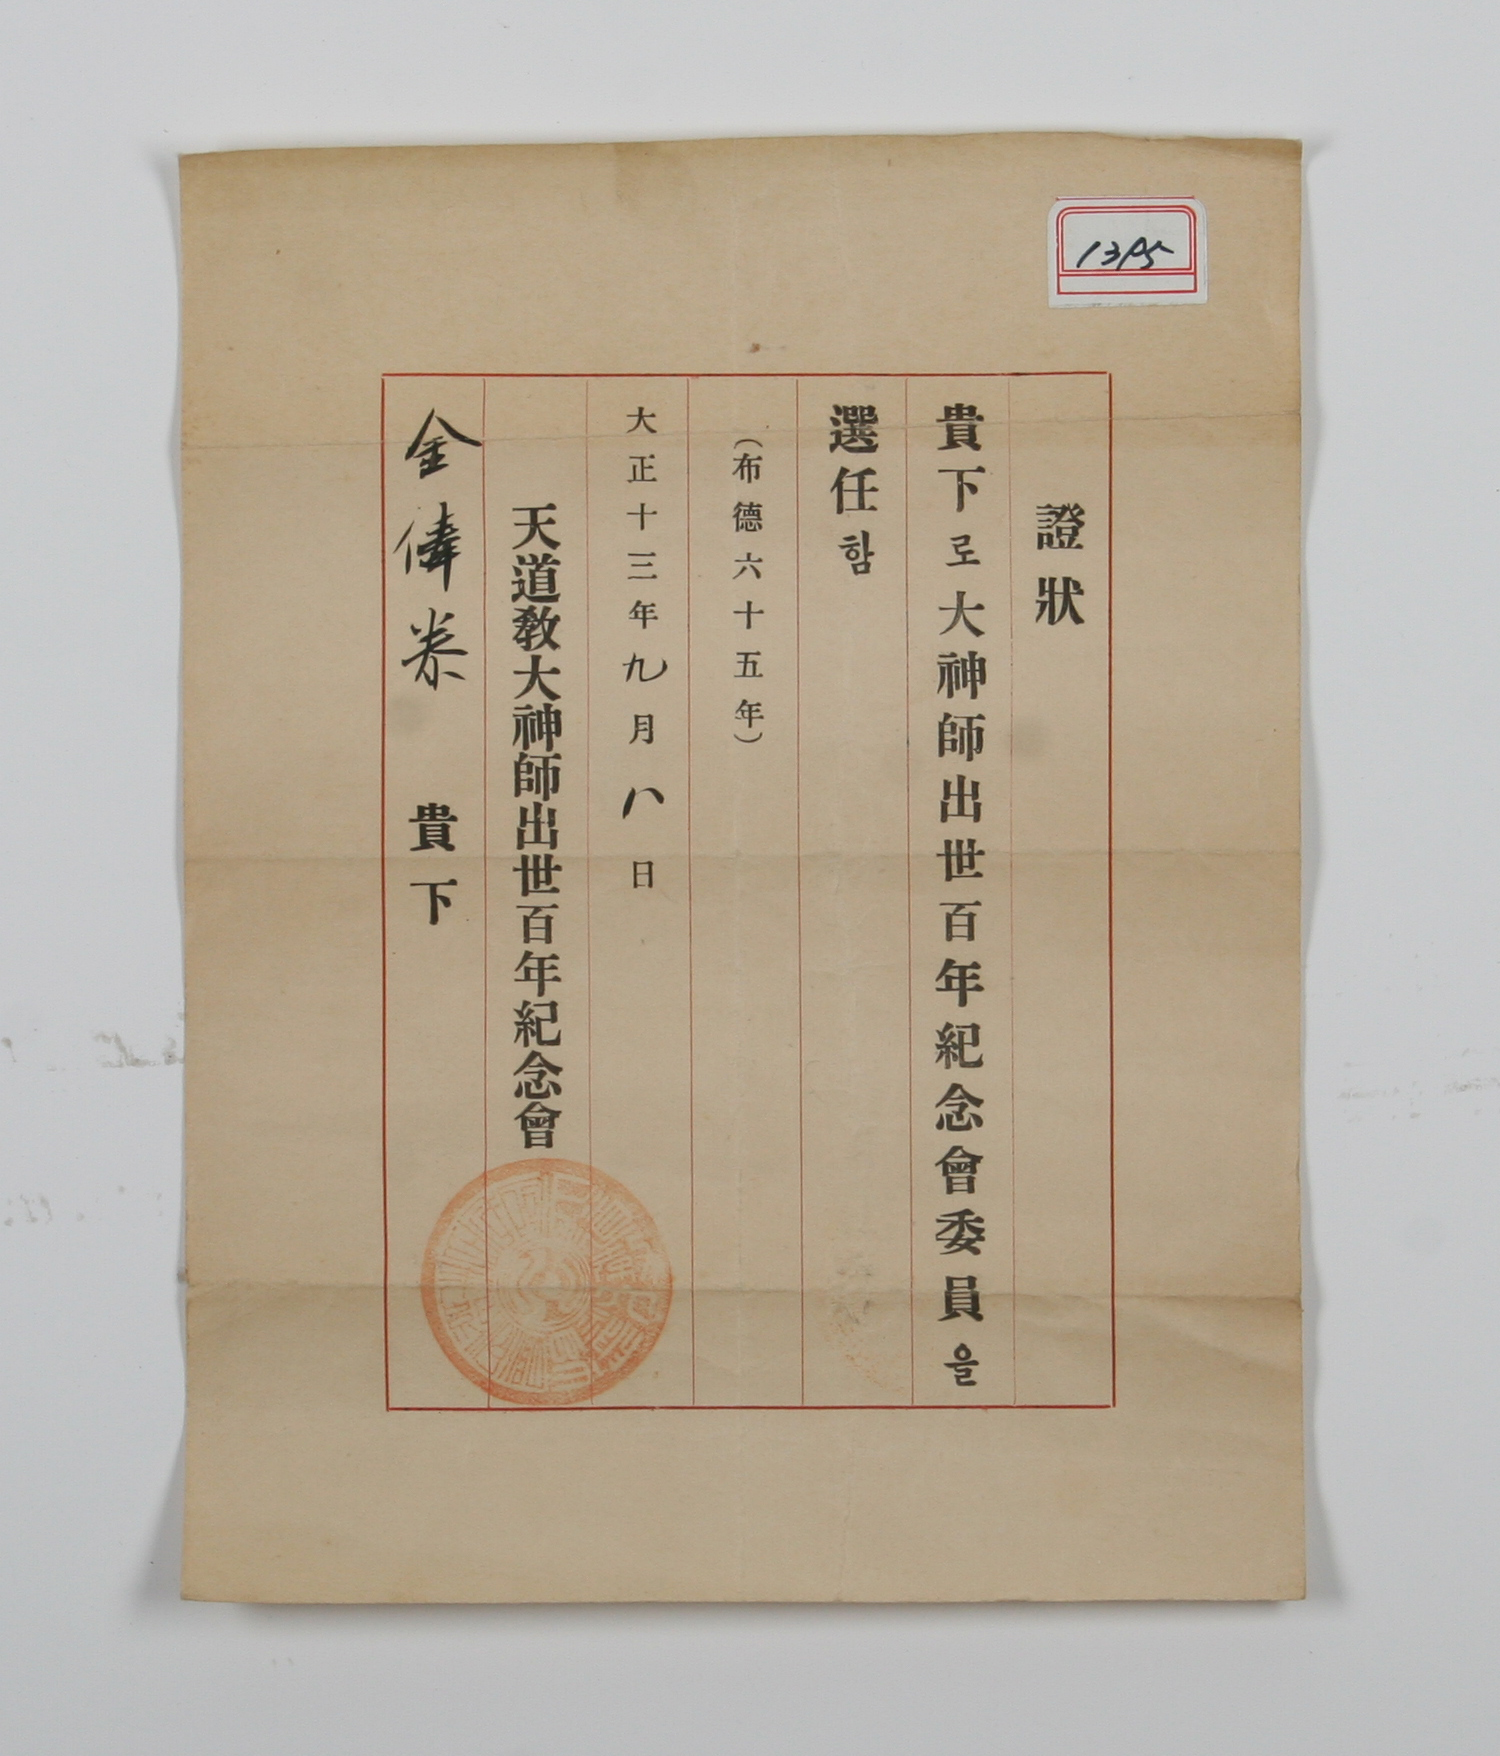 證狀
貴下로大神師出世百年紀念會委員을
選任함
(布德六十五年)
大正十三年九月八日
天道敎大神師出世百年紀念會
金偉桊 貴下